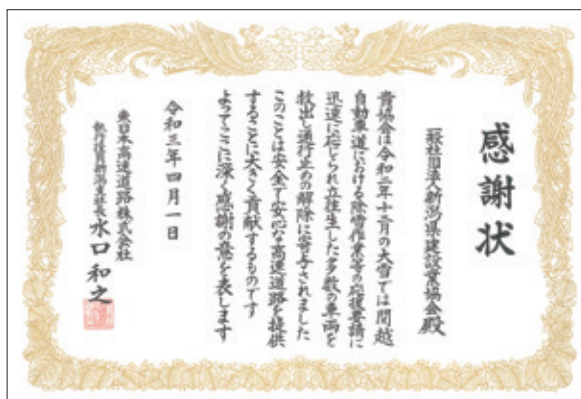 感謝状
一般社団法人新潟県建設業協会殿
貴協会は令和二年十二月の大雪では関越
自動車道における除雪作業等の応援要請に
迅速に応じられ立往生した多数の車両を
救出し通行止めの解除に寄与されました
このことは安全で安心な高速道路を提供
することに大きく貢献するものです
よってここに深く感謝の意を表します
令和三年四月一日
東日本高速道路株式会社
執行役員新潟支社長 水口和之